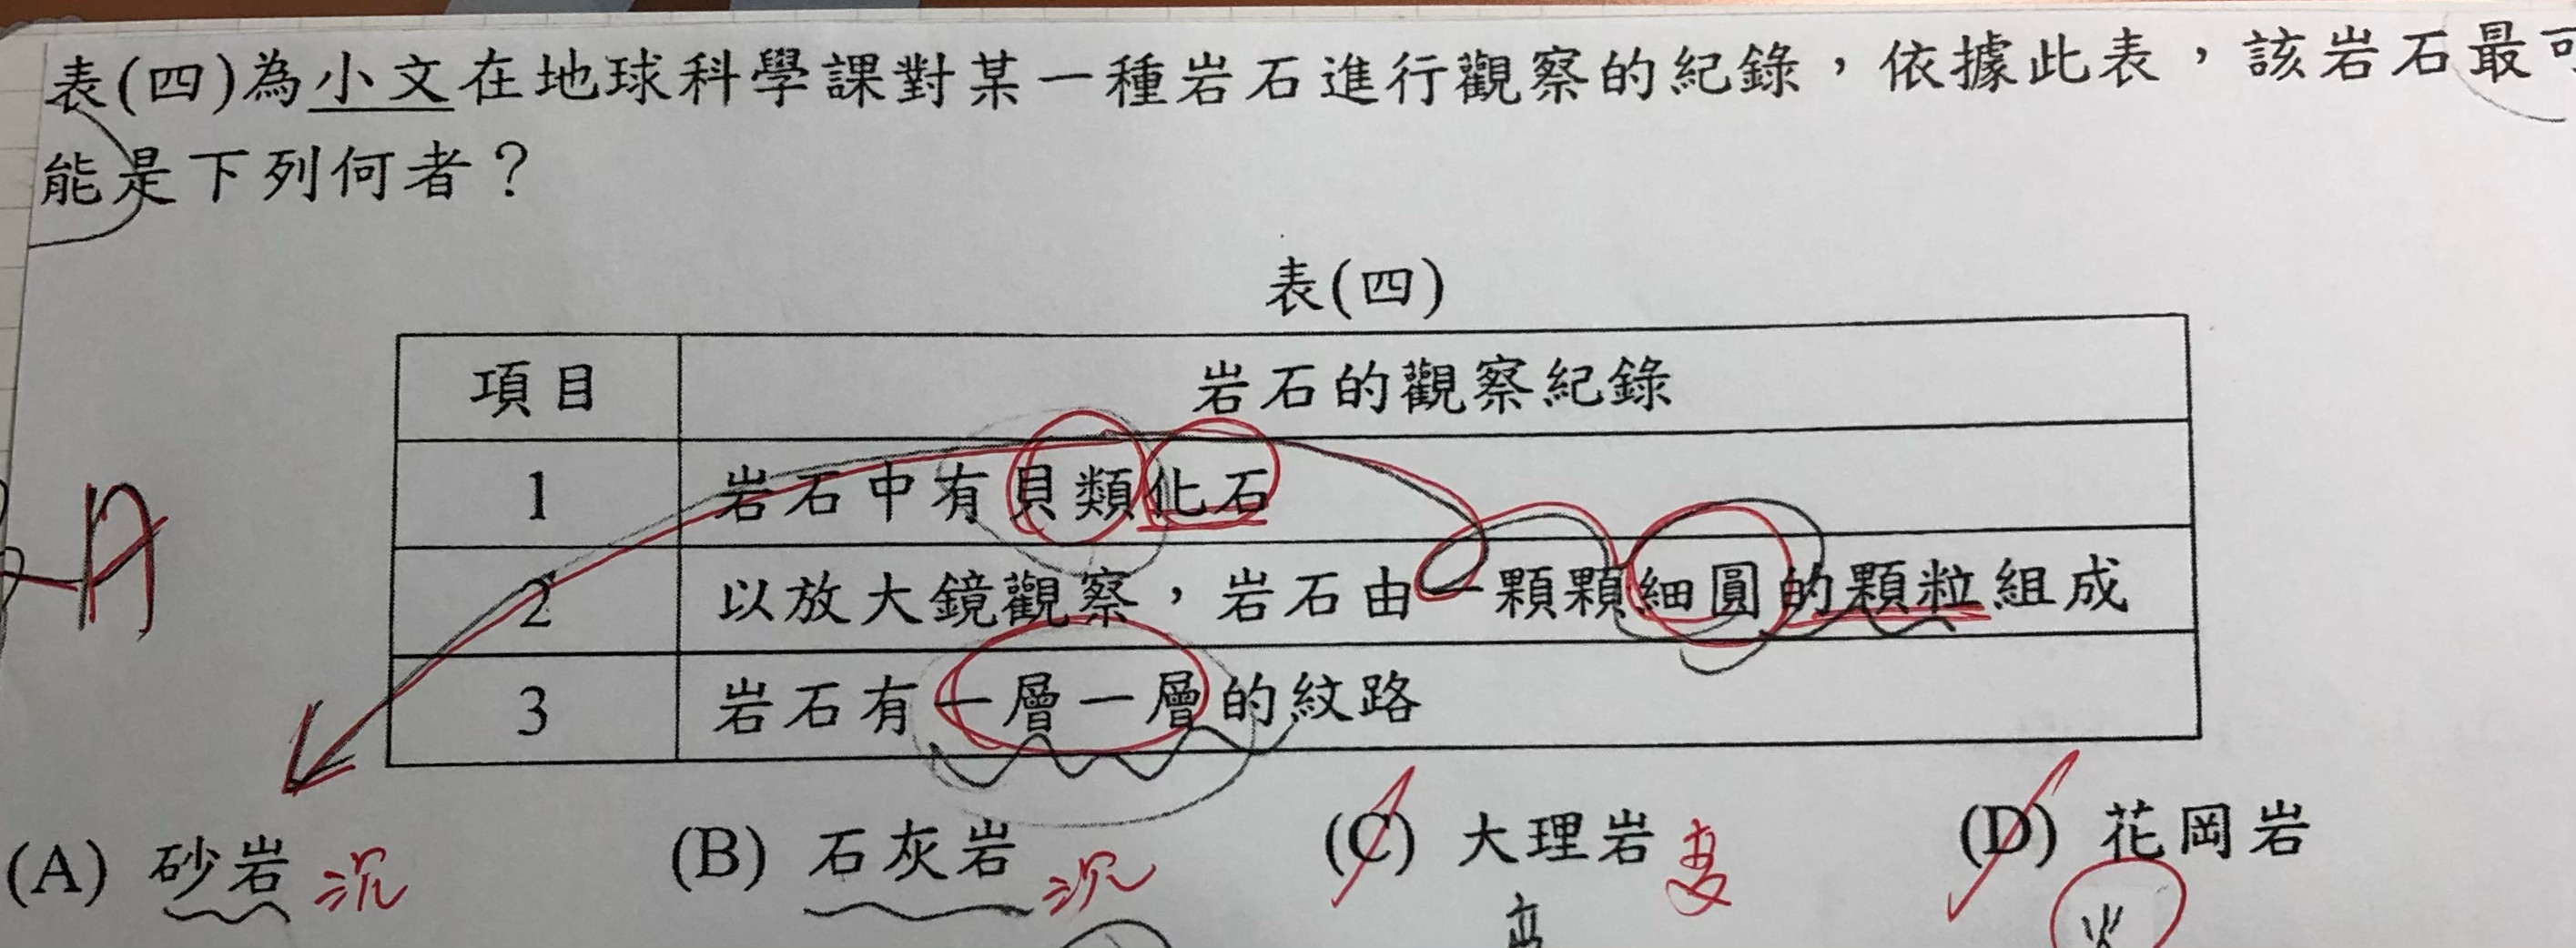 表(四)為小文在地球科學課對某一種岩石進行觀察的紀錄，依據此表，該岩石最可
能是下列何者？
表(四)
項目 岩石的觀察紀錄
1 岩石中有貝類化石
2 以放大鏡觀察，岩石由一顆顆細圓的顆粒組成
3 岩石有一層一層的紋路
A
(A) 砂岩 沉 (B) 石灰岩 沉 (C) 大理岩 变 (D) 花岡岩
火